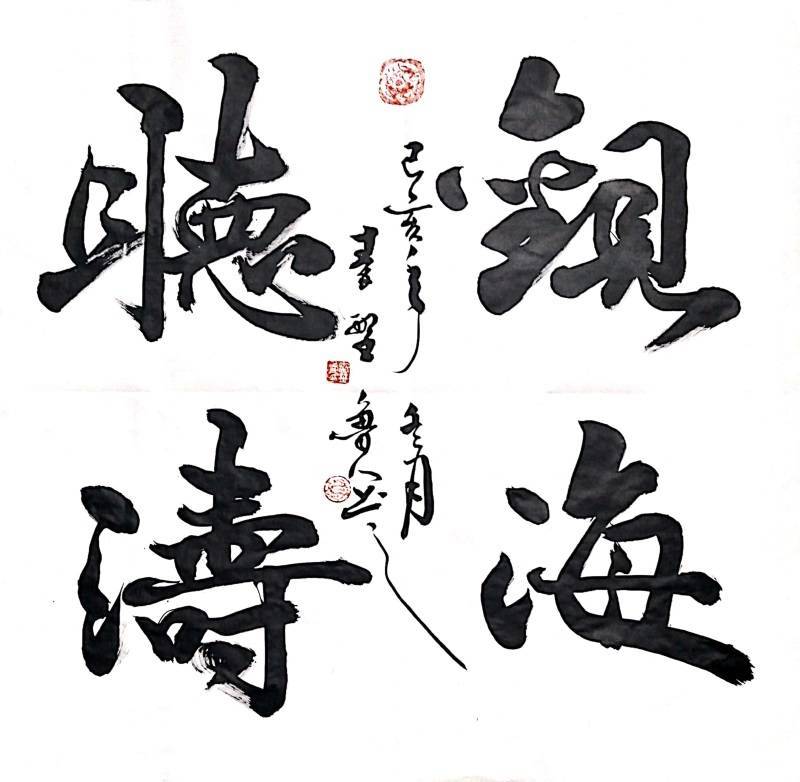 觀海
聽濤
己亥年
冬月
書聖
魯人